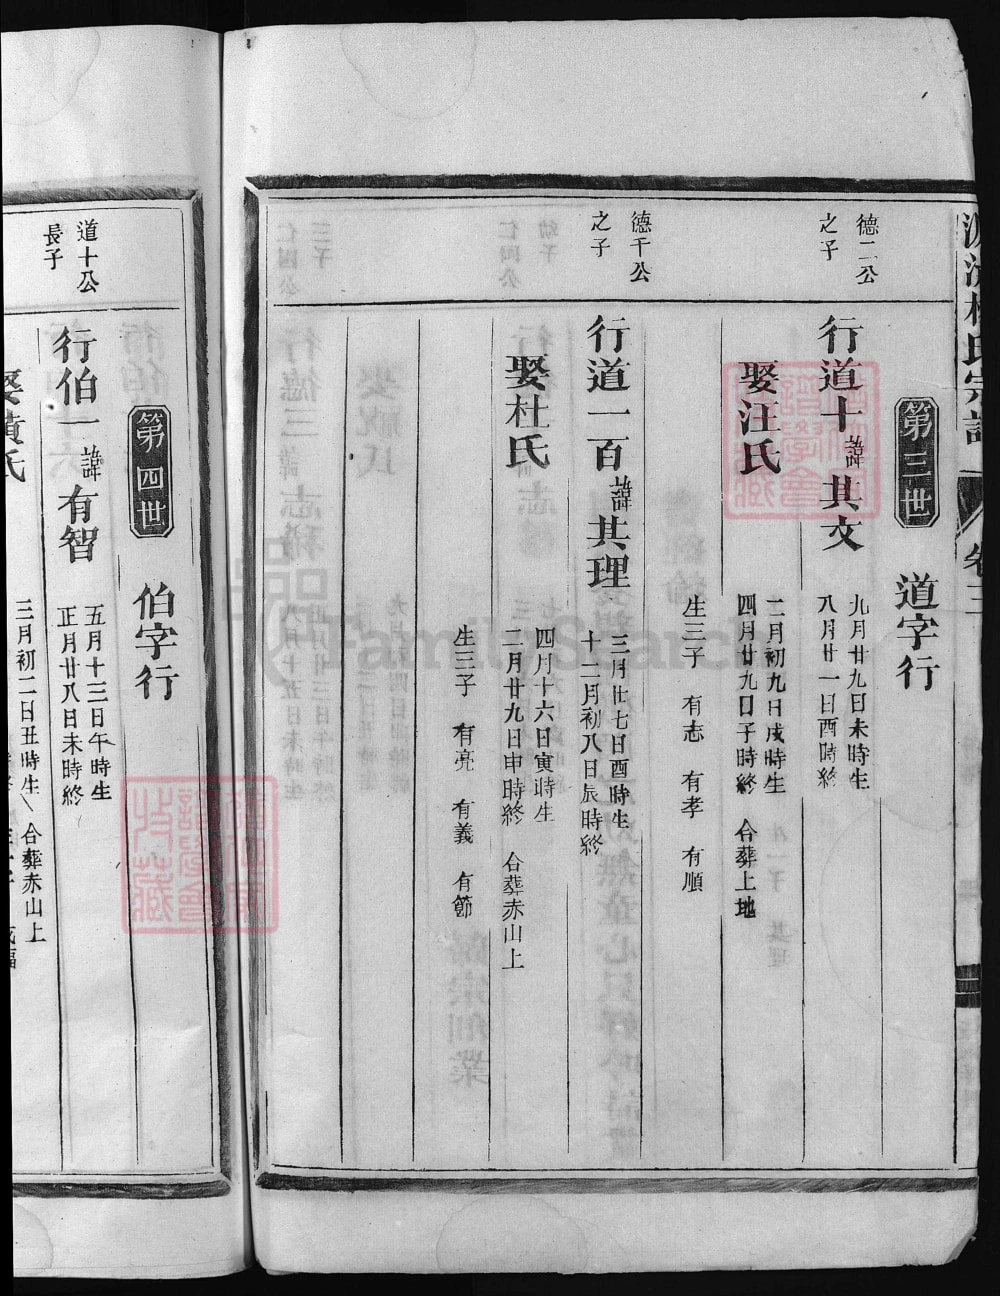 氏宗譜
卷三
第三世 道字行
德二公
之子
行道十諱其文
九月廿九日未時生
八月廿一日酉時終
娶汪氏
二月初九日戌時生
四月廿九日子時終 合葬上地
生三子 有志 有孝 有順
德千公
之子
行道一百諱其理
三月廿七日酉時生
十二月初八日辰時終
娶杜氏
四月十六日寅時生
二月廿九日申時終 合葬赤山上
生三子 有亮 有義 有節
第四世 伯字行
道十公
長子
行伯一諱有智
五月十三日午時生
正月廿八日未時終
娶黃氏
三月初二日丑時生
合葬赤山上
FamilySearch